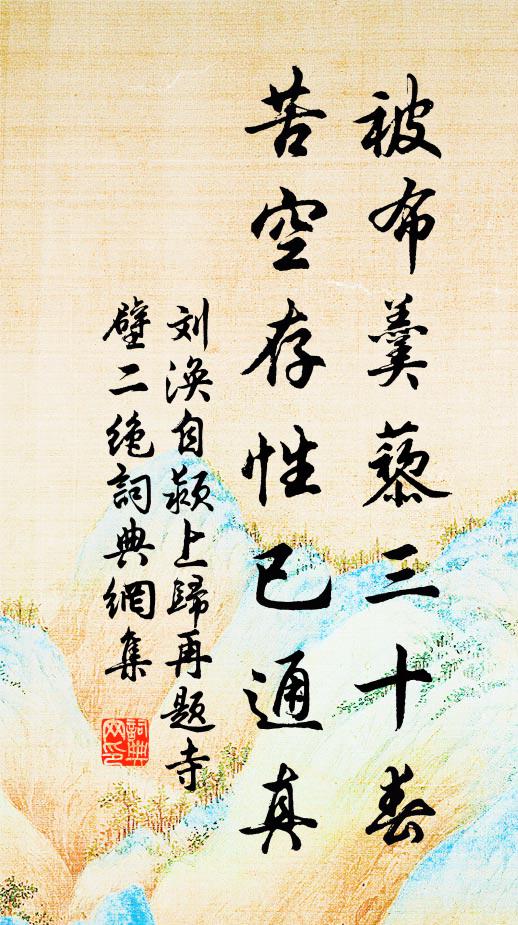 被布羹藜三十春
苦空存性已通真
刘涣自颍上歸再题寺
壁二绝詞典網集
詞典网印